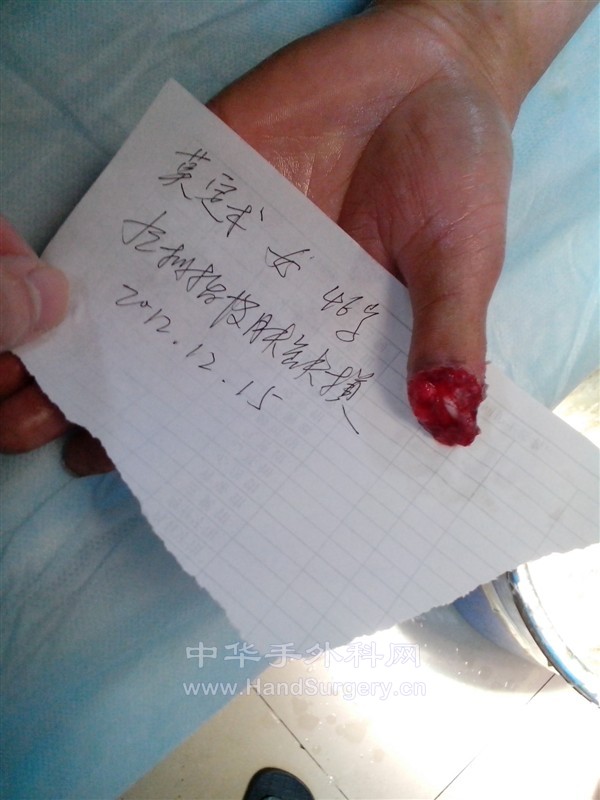 女 46岁
右拇指皮肤缺损
2012.12.15
中华手外科网
www.HandSurgery.cn